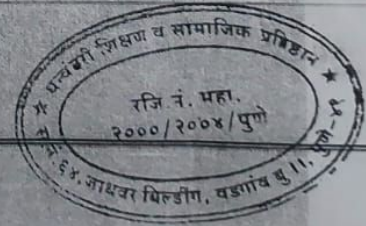 ★ धन्वंतरी शिक्षण व सामाजिक प्रतिष्ठान ★
रजि. नं. महा.
२०००/२००४/पुणे
६४, जाधवर बिल्डींग, वडगांव बु ॥, पुणे-